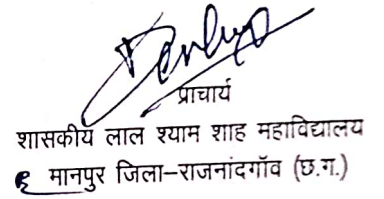 प्राचार्य
शासकीय लाल श्याम शाह महाविद्यालय
मानपुर जिला-राजनांदगॉव (छ.ग.)